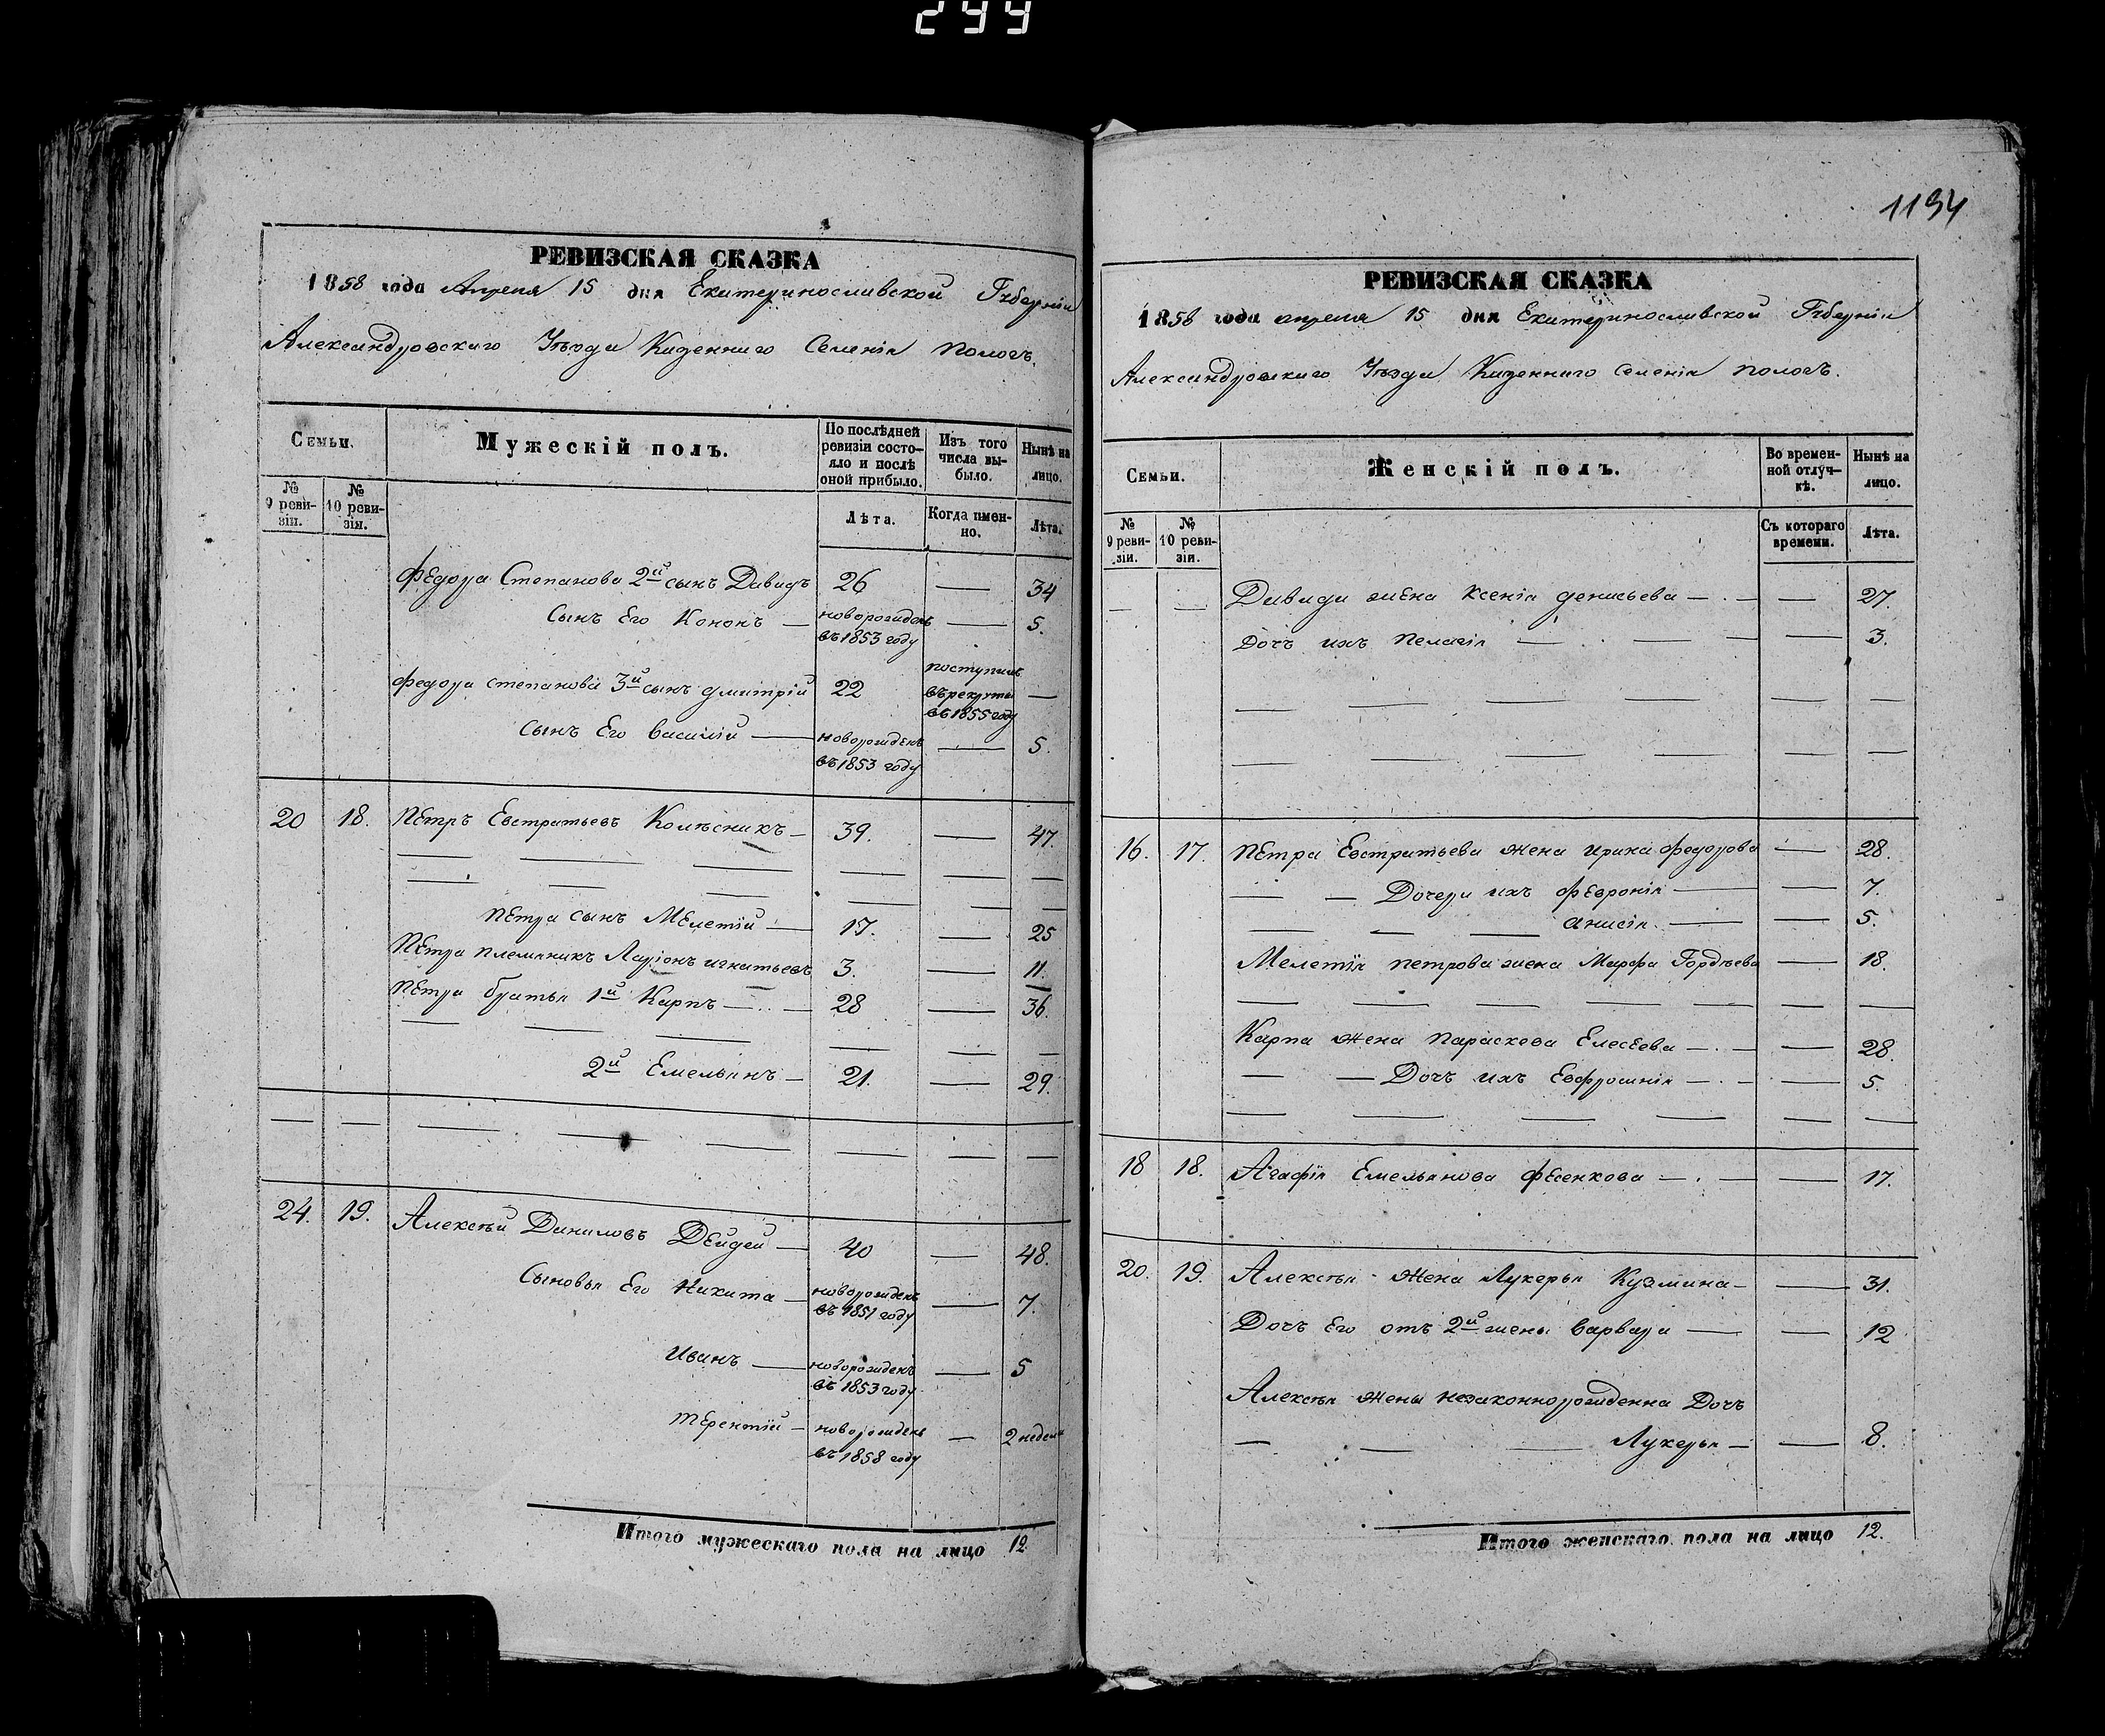 244
1194
РЕВИЗСКАЯ СКАЗКА
1858 года Апреля 15 дня Екатеринославской Губерніи
Александровскаго Уѣзда Казеннаго Селенія Пологъ.
Семьи.
Мужескій полъ.
По послѣдней ревизіи состояло и послѣ оной прибыло.
Изъ того числа выбыло.
Нынѣ на лицо.
№ 9 ревизіи.
№ 10 ревизія.
Лѣта.
Когда имен-но.
Лѣта.
Федора Степанова 2й сынъ Давидъ 26 — 34
Сынъ Его Кононъ — новорожденъ въ 1853 году — 5.
Федора Степанова 3й сынъ Дмитрій 22 поступилъ въ рекруты въ 1855 году —
Сынъ Его Василій — новорожденъ въ 1853 году — 5.
20 18. Петръ Евстратьевъ Колѣсникъ — 39. — 47.
Петра сынъ Мелетій — 17. — 25
Петра племяникъ Ларіонъ Игнатьевъ 3. — 11.
Петра братья 1й Карпъ — 28 — 36.
2й Емельянъ — 21. — 29.
24. 19. Алексѣй Даниловъ Дейдей — 40 — 48.
Сыновья Его Никита — новорожденъ въ 1851 году — 7.
Иванъ — новорожденъ въ 1853 году — 5
Терентій — новорожденъ въ 1858 году — 2 недели
Итого мужескаго пола на лицо 12
РЕВИЗСКАЯ СКАЗКА
1858 года апреля 15 дня Екатеринославской Губерніи
Александровскаго Уѣзда Казеннаго Селенія Пологъ.
Семьи.
Женскій полъ.
Во времен-ной отлуч-кѣ.
Нынѣ на лицо.
№ 9 реви-зіи.
№ 10 реви-зіи.
Съ котораго времени.
Лѣта.
— — Давида жена Ксенія Денисьева — — 27.
Дочь ихъ Пелагія — — 3.
16. 17. Петра Евстратьева жена Ирина Федорова — 28.
Дочери ихъ Февронія — — 7.
Анисія — — 5.
Мелетія Петрова жена Марфа Гордѣева — 18.
Карпа жена Параскова Елесеева — — 28.
Дочь ихъ Евфросинія — — 5.
18 18. Агафія Емельянова Фесенкова — — 17.
20. 19. Алексѣя жена Лукерья Кузмина — — 31.
Дочь Его отъ 2й жены Варвара — — 12
Алексѣя жены незаконнорожденна Дочь
Лукерья — — 8.
Итого женскаго пола на лицо 12.